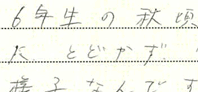 6年生の秋頃
た とどかず
様子なんです